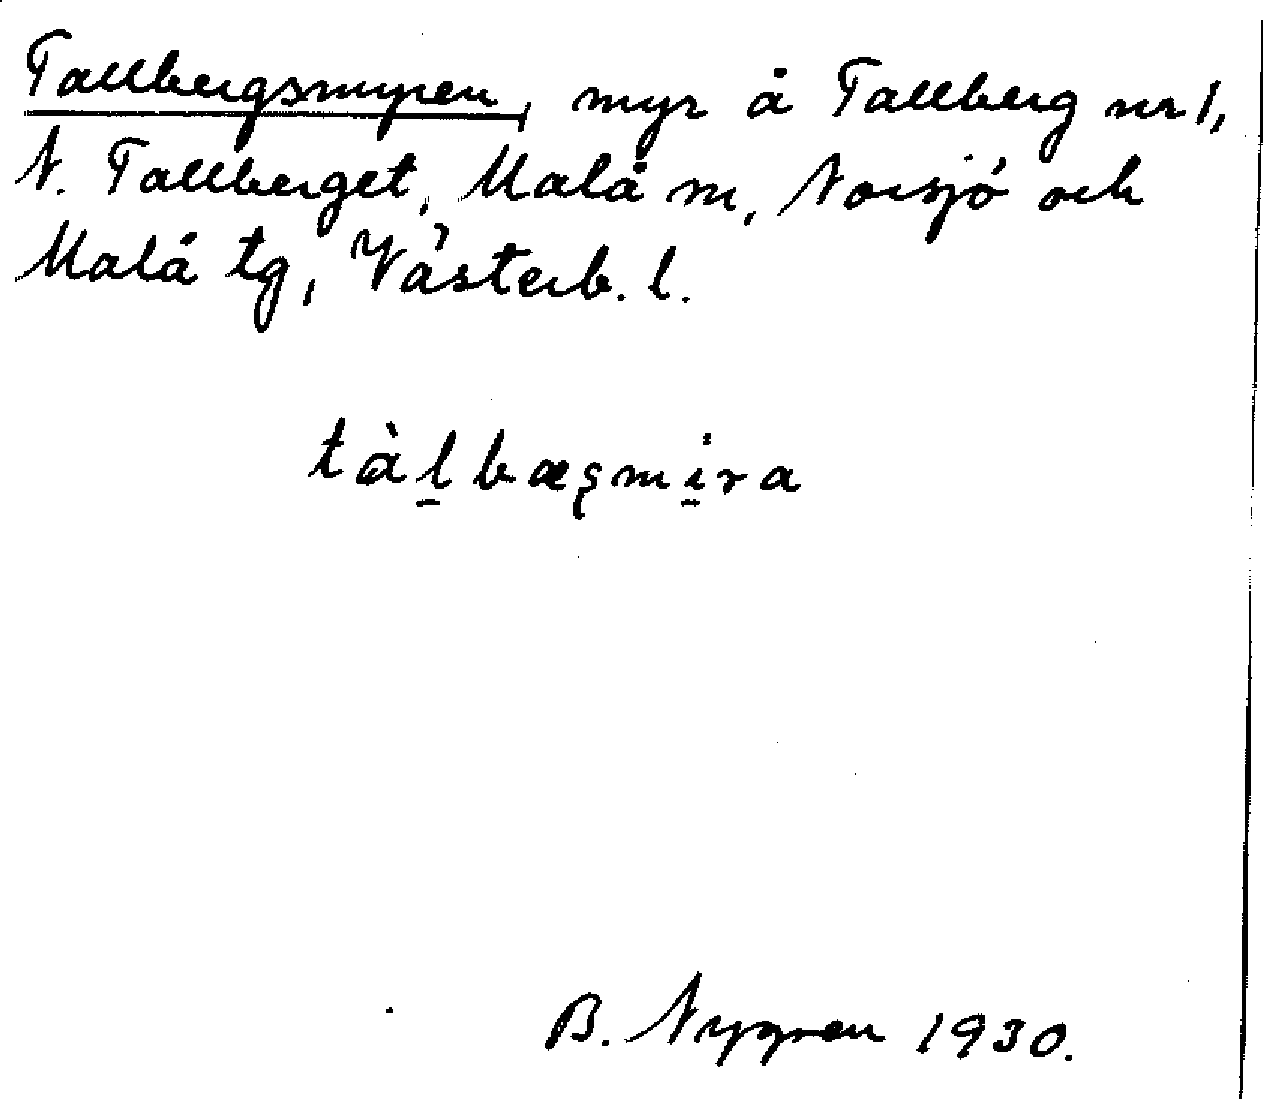 Tallbergsmyren, myr å Tallberg nr 1,
N. Tallberget, Malå sn, Norsjö och
Malå tg, Västerb. l.
tàl̠bæʂmi̠ra
B. Nygren 1930.